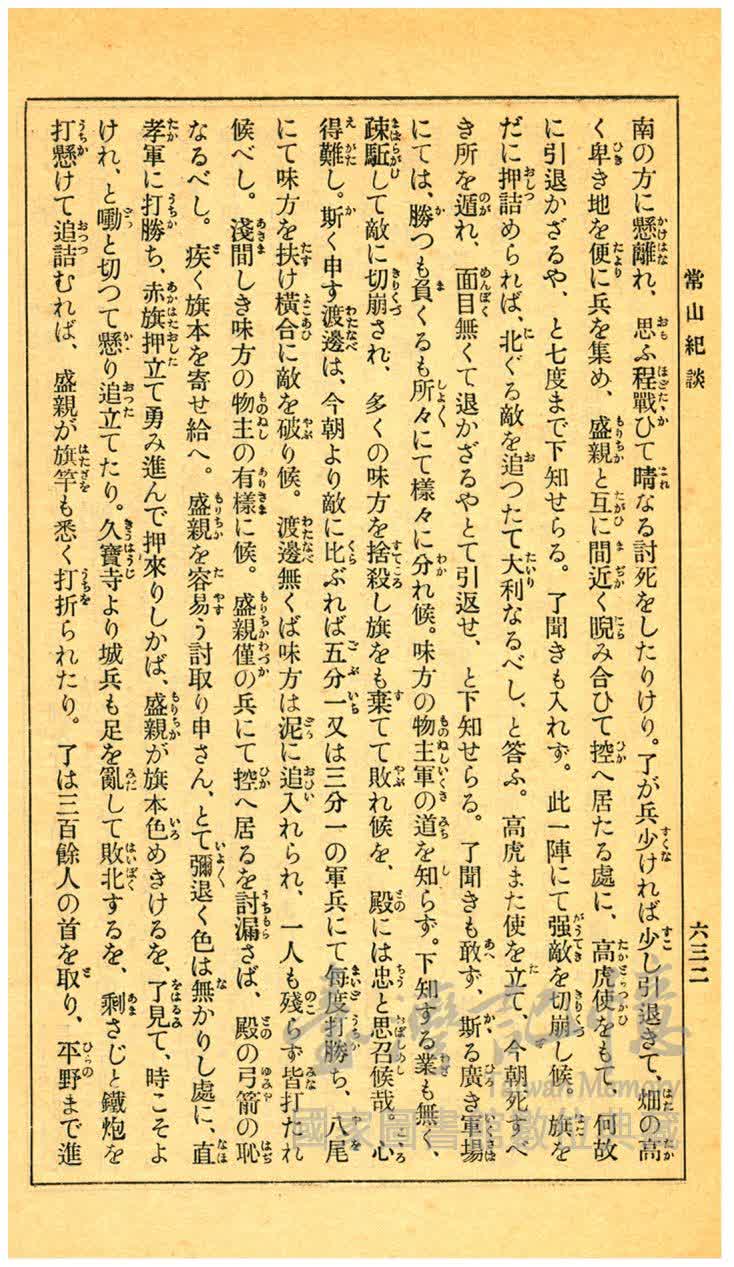 常山紀談
六三二
南の方に懸離れ、思ふ程戰ひて晴なる討死をしたりけり。了が兵少ければ少し引退きて、畑の高
く卑き地を便に兵を集め、盛親と互に間近く睨み合ひて控へ居たる處に、高虎使をもて、何故
に引退かざるや、と七度まで下知せらる。了聞きも入れず。此一陣にて强敵を切崩し候。旗を
だに押詰められば、北ぐる敵を追つたて大利なるべし、と答ふ。高虎また使を立て、今朝死すべ
き所を遁れ、面目無くて退かざるやとて引返せ、と下知せらる。了聞きも敢ず、斯る廣き軍場
にては、勝つも負くるも所々にて樣々に分れ候。味方の物主軍の道を知らず。下知する業も無く、
疎駈して敵に切崩され、多くの味方を捨殺し旗をも棄てて敗れ候を、殿には忠と思召候哉。心
得難し。斯く申す渡邊は、今朝より敵に比ぶれば五分一又は三分一の軍兵にて每度打勝ち、八尾
にて味方を扶け橫合に敵を破り候。渡邊無くば味方は泥に追入れられ、一人も殘らず皆打たれ
候べし。淺間しき味方の物主の有樣に候。盛親僅の兵にて控へ居るを討漏さば、殿の弓箭の恥
なるべし。疾く旗本を寄せ給へ。盛親を容易う討取り申さん、とて彌退く色は無かりし處に、直
孝軍に打勝ち、赤旗押立て勇み進んで押來りしかば、盛親が旗本色めきけるを、了見て、時こそよ
けれ、と噇と切つて懸り追立てたり。久寶寺より城兵も足を亂して敗北するを、剩さじと鐵炮を
打懸けて追詰むれば、盛親が旗竿も悉く打折られたり。了は三百餘人の首を取り、平野まで進
臺灣記憶
Taiwan Memory
國家圖書館數位典藏